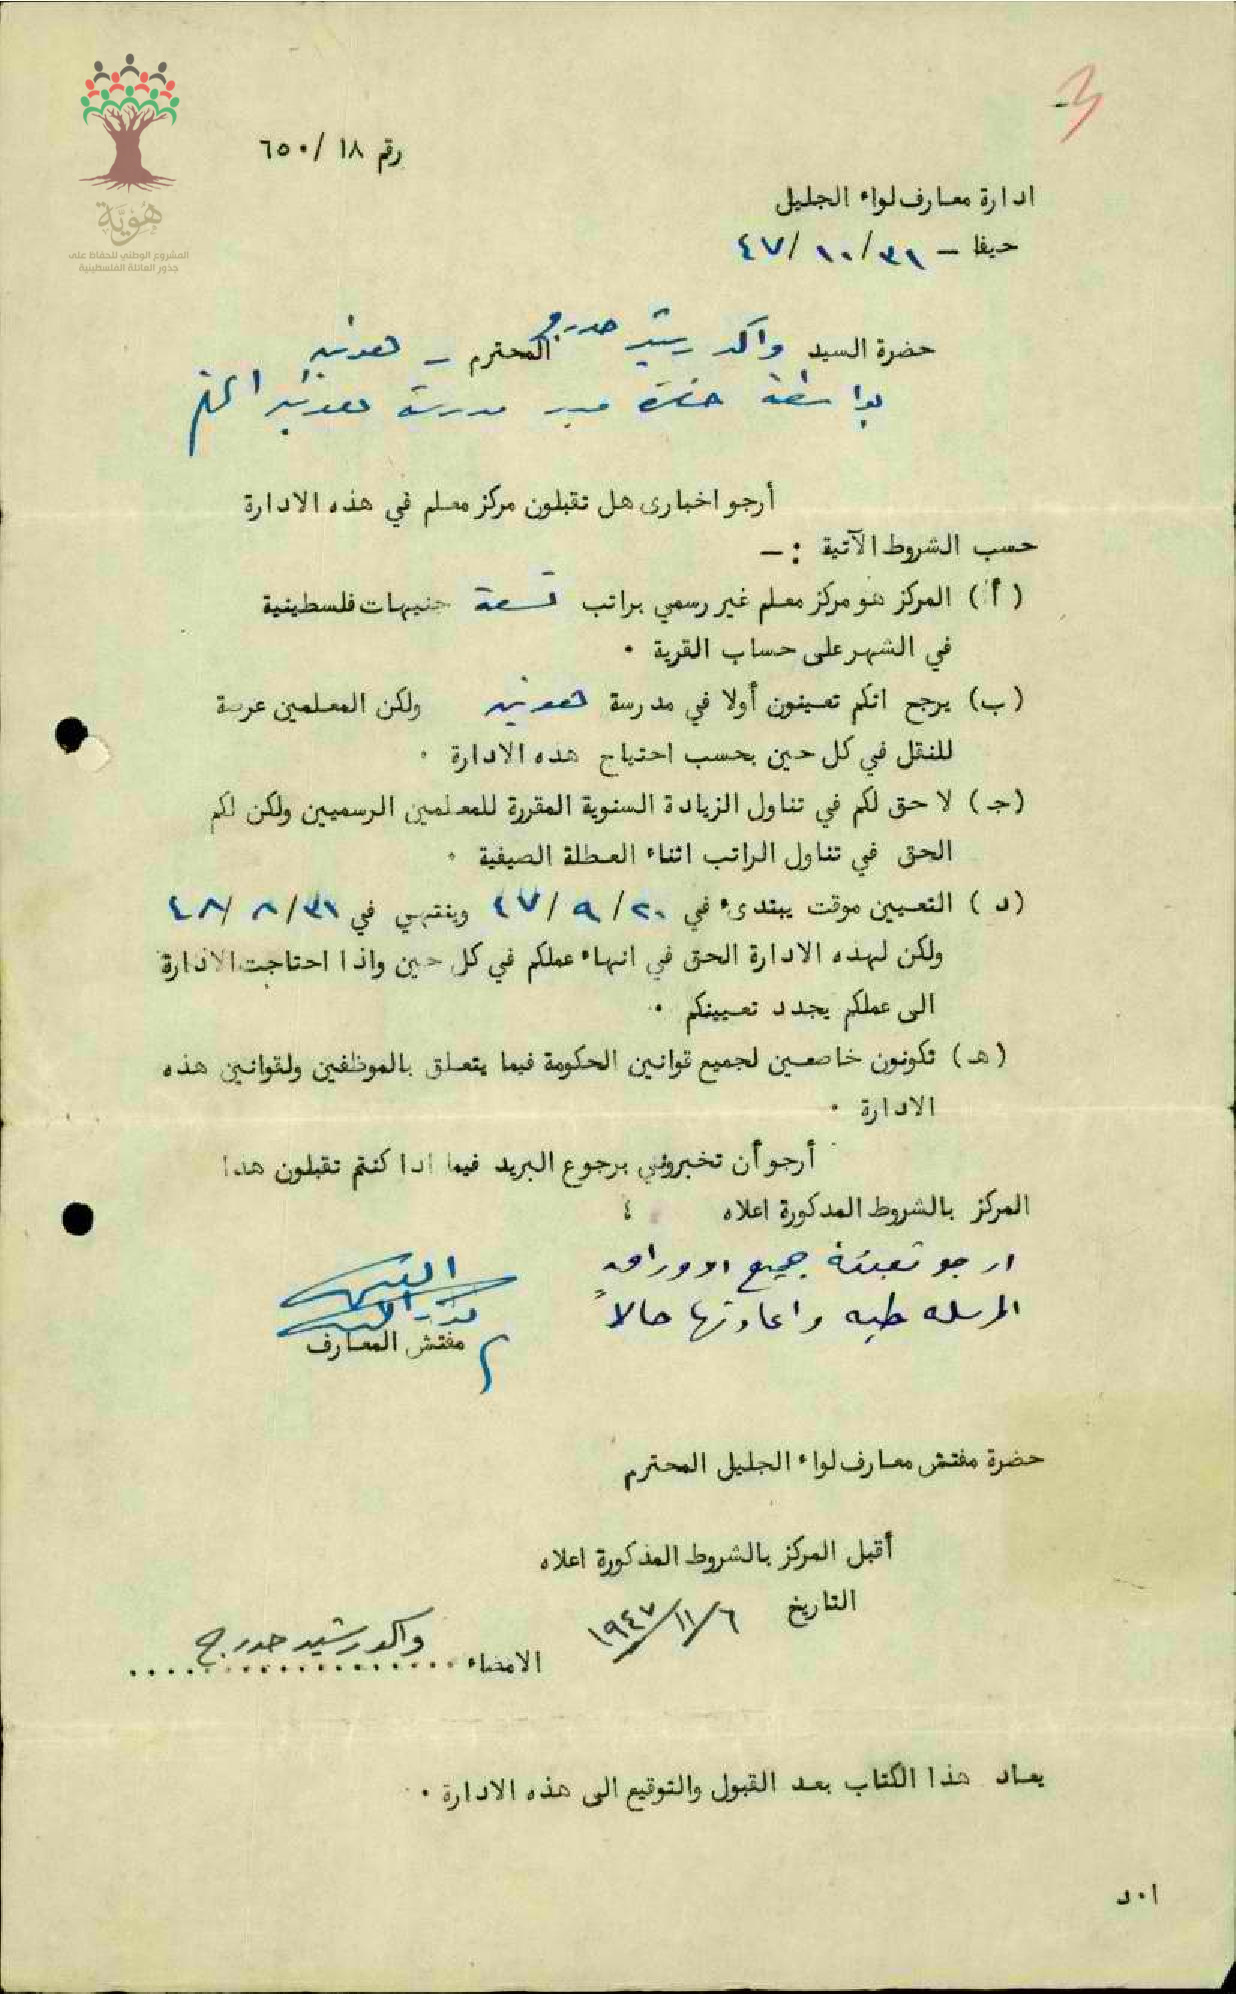 هُوِيَّة
المشروع الوطني للحفاظ على
جذور العائلة الفلسطينية
3
رقم ١٨ /٦٥٠
ادارة معارف لواء الجليل
حيفا - ٣١/ ١٠/ ٤٧
حضرة السيد واكد رشيد حدرج المحترم - هونين
بواسطة حضرة مدير مدرسة هونين المحترم
أرجو اخبارى هل تقبلون مركز معلم في هذه الادارة
حسب الشروط الآتية : -
( أ ) المركز هو مركز معلم غير رسمي براتب تسعة جنيهات فلسطينية
في الشهر على حساب القرية ٠
(ب) يرجح انكم تعينون أولا في مدرسة هونين ولكن المعلمين عرضة
للنقل في كل حين بحسب احتياج هذه الادارة ٠
(جـ) لا حق لكم في تناول الزيادة السنوية المقررة للمعلمين الرسميين ولكن لكم
الحق في تناول الراتب اثناء العطلة الصيفية ٠
(د ) التعيين موقت يبتدىء في ٢٠ /٩ /٤٧ وينتهي في ٣١/ ٨ /٤٨
ولكن لهذه الادارة الحق في انهاء عملكم في كل حين واذا احتاجت الادارة
الى عملكم يجدد تعيينكم ٠
(هـ) تكونون خاضعين لجميع قوانين الحكومة فيما يتعلق بالموظفين ولقوانين هذه
الادارة ٠
أرجو أن تخبروني برجوع البريد فيما اذا كنتم تقبلون هذا
المركز بالشروط المذكورة اعلاه ٤
ارجو تعبئة جميع الاوراق
المرسلة طيه واعادتها حالاً
مفتش المعارف
حضرة مفتش معارف لواء الجليل المحترم
أقبل المركز بالشروط المذكورة اعلاه
التاريخ ٦/ ١١/ ١٩٤٧
الامضاء واكد رشيد حدرج
يعاد هذا الكتاب بعد القبول والتوقيع الى هذه الادارة ٠
ا ٠ د